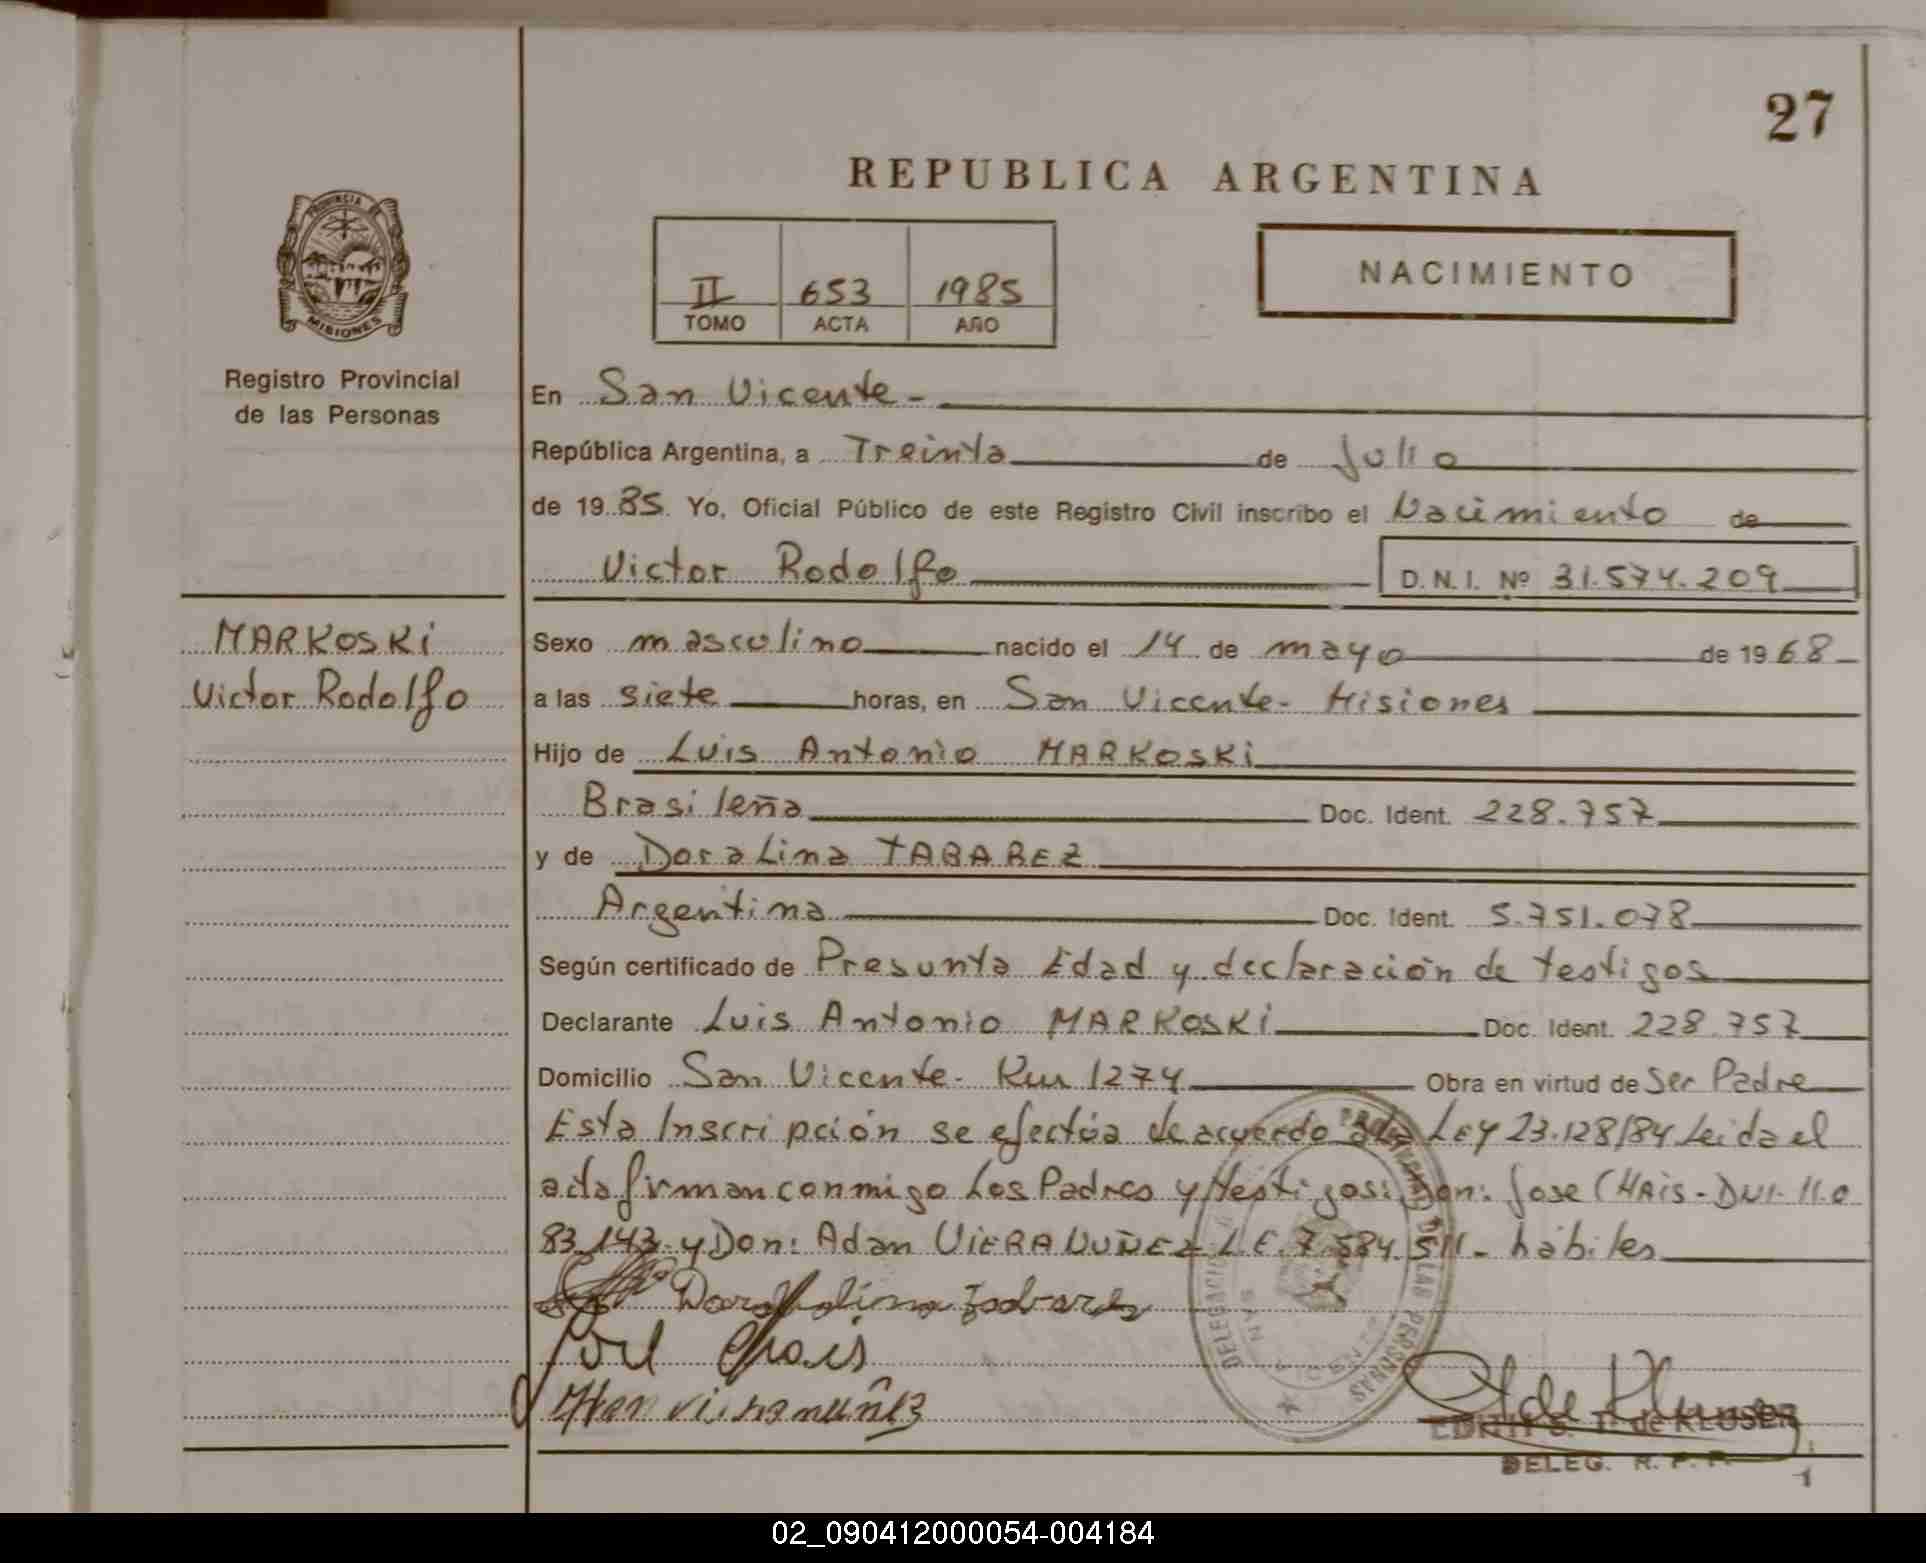 27
REPUBLICA ARGENTINA
PROVINCIA DE
MISIONES
Registro Provincial
de las Personas
II 653 1985
TOMO ACTA AÑO
NACIMIENTO
En San Vicente -
República Argentina, a Treinta de Julio
de 19 85 Yo, Oficial Público de este Registro Civil inscribo el Nacimiento de
Victor Rodolfo D.N.I. Nº 31.574.209
MARKOSKi
Victor Rodolfo
Sexo masculino nacido el 14 de mayo de 19 68
a las siete horas, en San Vicente - Misiones
Hijo de Luis Antonio MARKOSKi
Brasileña Doc. Ident. 228.757
y de Doralina TABAREZ
Argentina Doc. Ident. 5.751.078
Según certificado de Presunta Edad y declaración de testigos
Declarante Luis Antonio MARKOSKi Doc. Ident. 228.757
Domicilio San Vicente - Km 1274 Obra en virtud de Ser Padre
Esta Inscripción se efectúa de acuerdo a la LEY 23.128/84 Leida el
acta firman conmigo Los Padres y testigos: Don: Jose CHAiS - DNI. 11.0
83.143. y Don: Adan ViERA NUÑEZ L.E. 7.584.511 - hábiles
DELEGACION DE LAS PERSONAS
SAN
Doralina Tabarez
José Chais
viera nuñez
de KLUSER
DELEG. R. P. P.
02_090412000054-004184